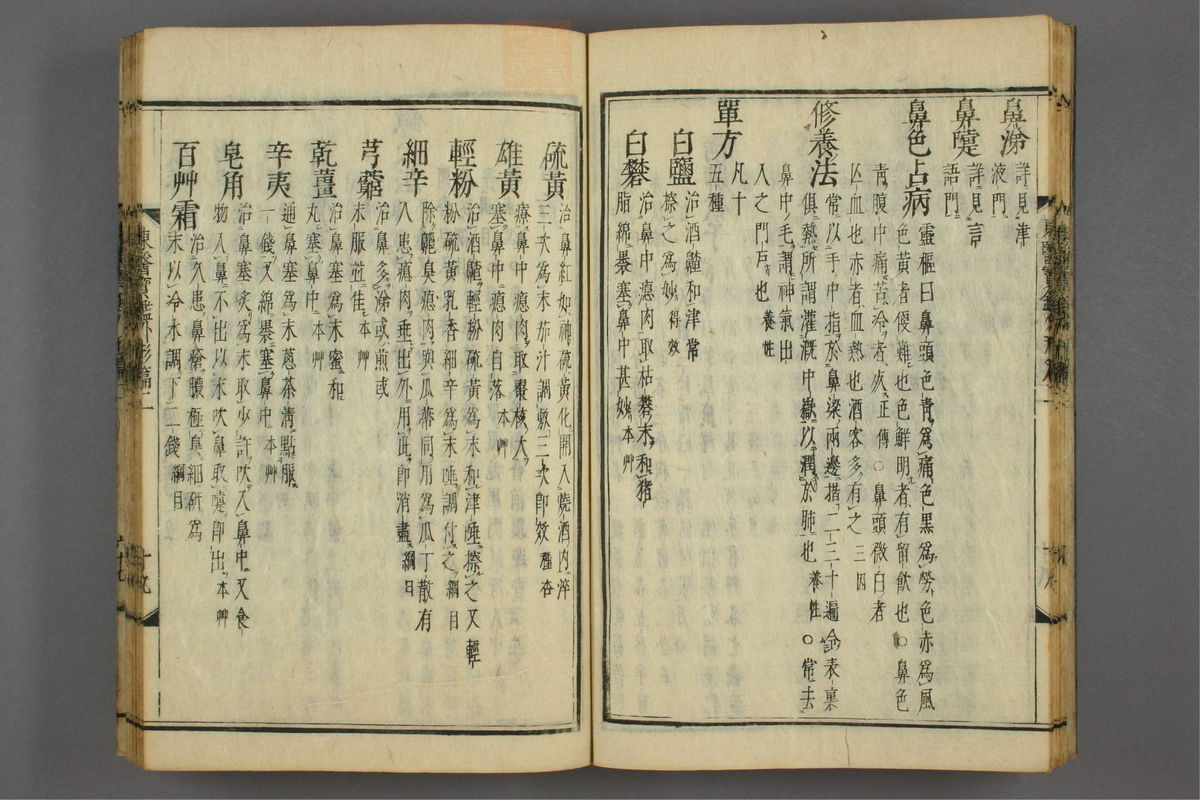 鼻涕
詳見津
液門
鼻嚏
詳見言
語門
鼻色占病
靈樞曰鼻頭色青爲痛色黑爲勞色赤爲風
色黃者便難也色鮮明者有留飮也○鼻色
青腹中痛苦冷者死正傳○鼻頭微白者
亾血也赤者血熱也酒客多有之三因
修養法
常以手中指於鼻梁兩邊揩二三十遍令表裏
俱熱所謂灌漑中嶽以潤於肺也養性○常去
鼻中毛謂神氣出
入之門戶也養性
單方
凡十
五種
白鹽
治酒齄和津常
擦之爲妙得效
白礬
治鼻中瘜肉取枯礬末和猪
脂綿褁塞鼻中甚妙本艸
硫黃
治鼻紅如神硫黃化開入燒酒內淬
三次爲末茄汁調敷三二次卽效種杏
雄黃
療鼻中瘜肉取棗核大
塞鼻中瘜肉自落本艸
輕粉
治酒齄輕粉硫黃爲末和津唾擦之又輕
粉硫黃乳香細辛爲末唾調付之綱目
細辛
除齆臭瘜肉與瓜蒂同用爲瓜丁散有
人患瘜肉垂出外用此卽消盡綱目
芎藭
治鼻多涕或煎或
末服並佳本艸
乾薑
治鼻塞爲末蜜和
丸塞鼻中本艸
辛夷
通鼻塞爲末葱茶淸點服
一錢又綿褁塞鼻中本艸
皂角
治鼻塞炙爲末取少許吹入鼻中又食
物入鼻不出以末吹鼻取嚏卽出本艸
百艸霜
治久患鼻瘡膿極臭細硏爲
末以冷水調下二錢綱目
東醫寶鑑外形篇二
十九